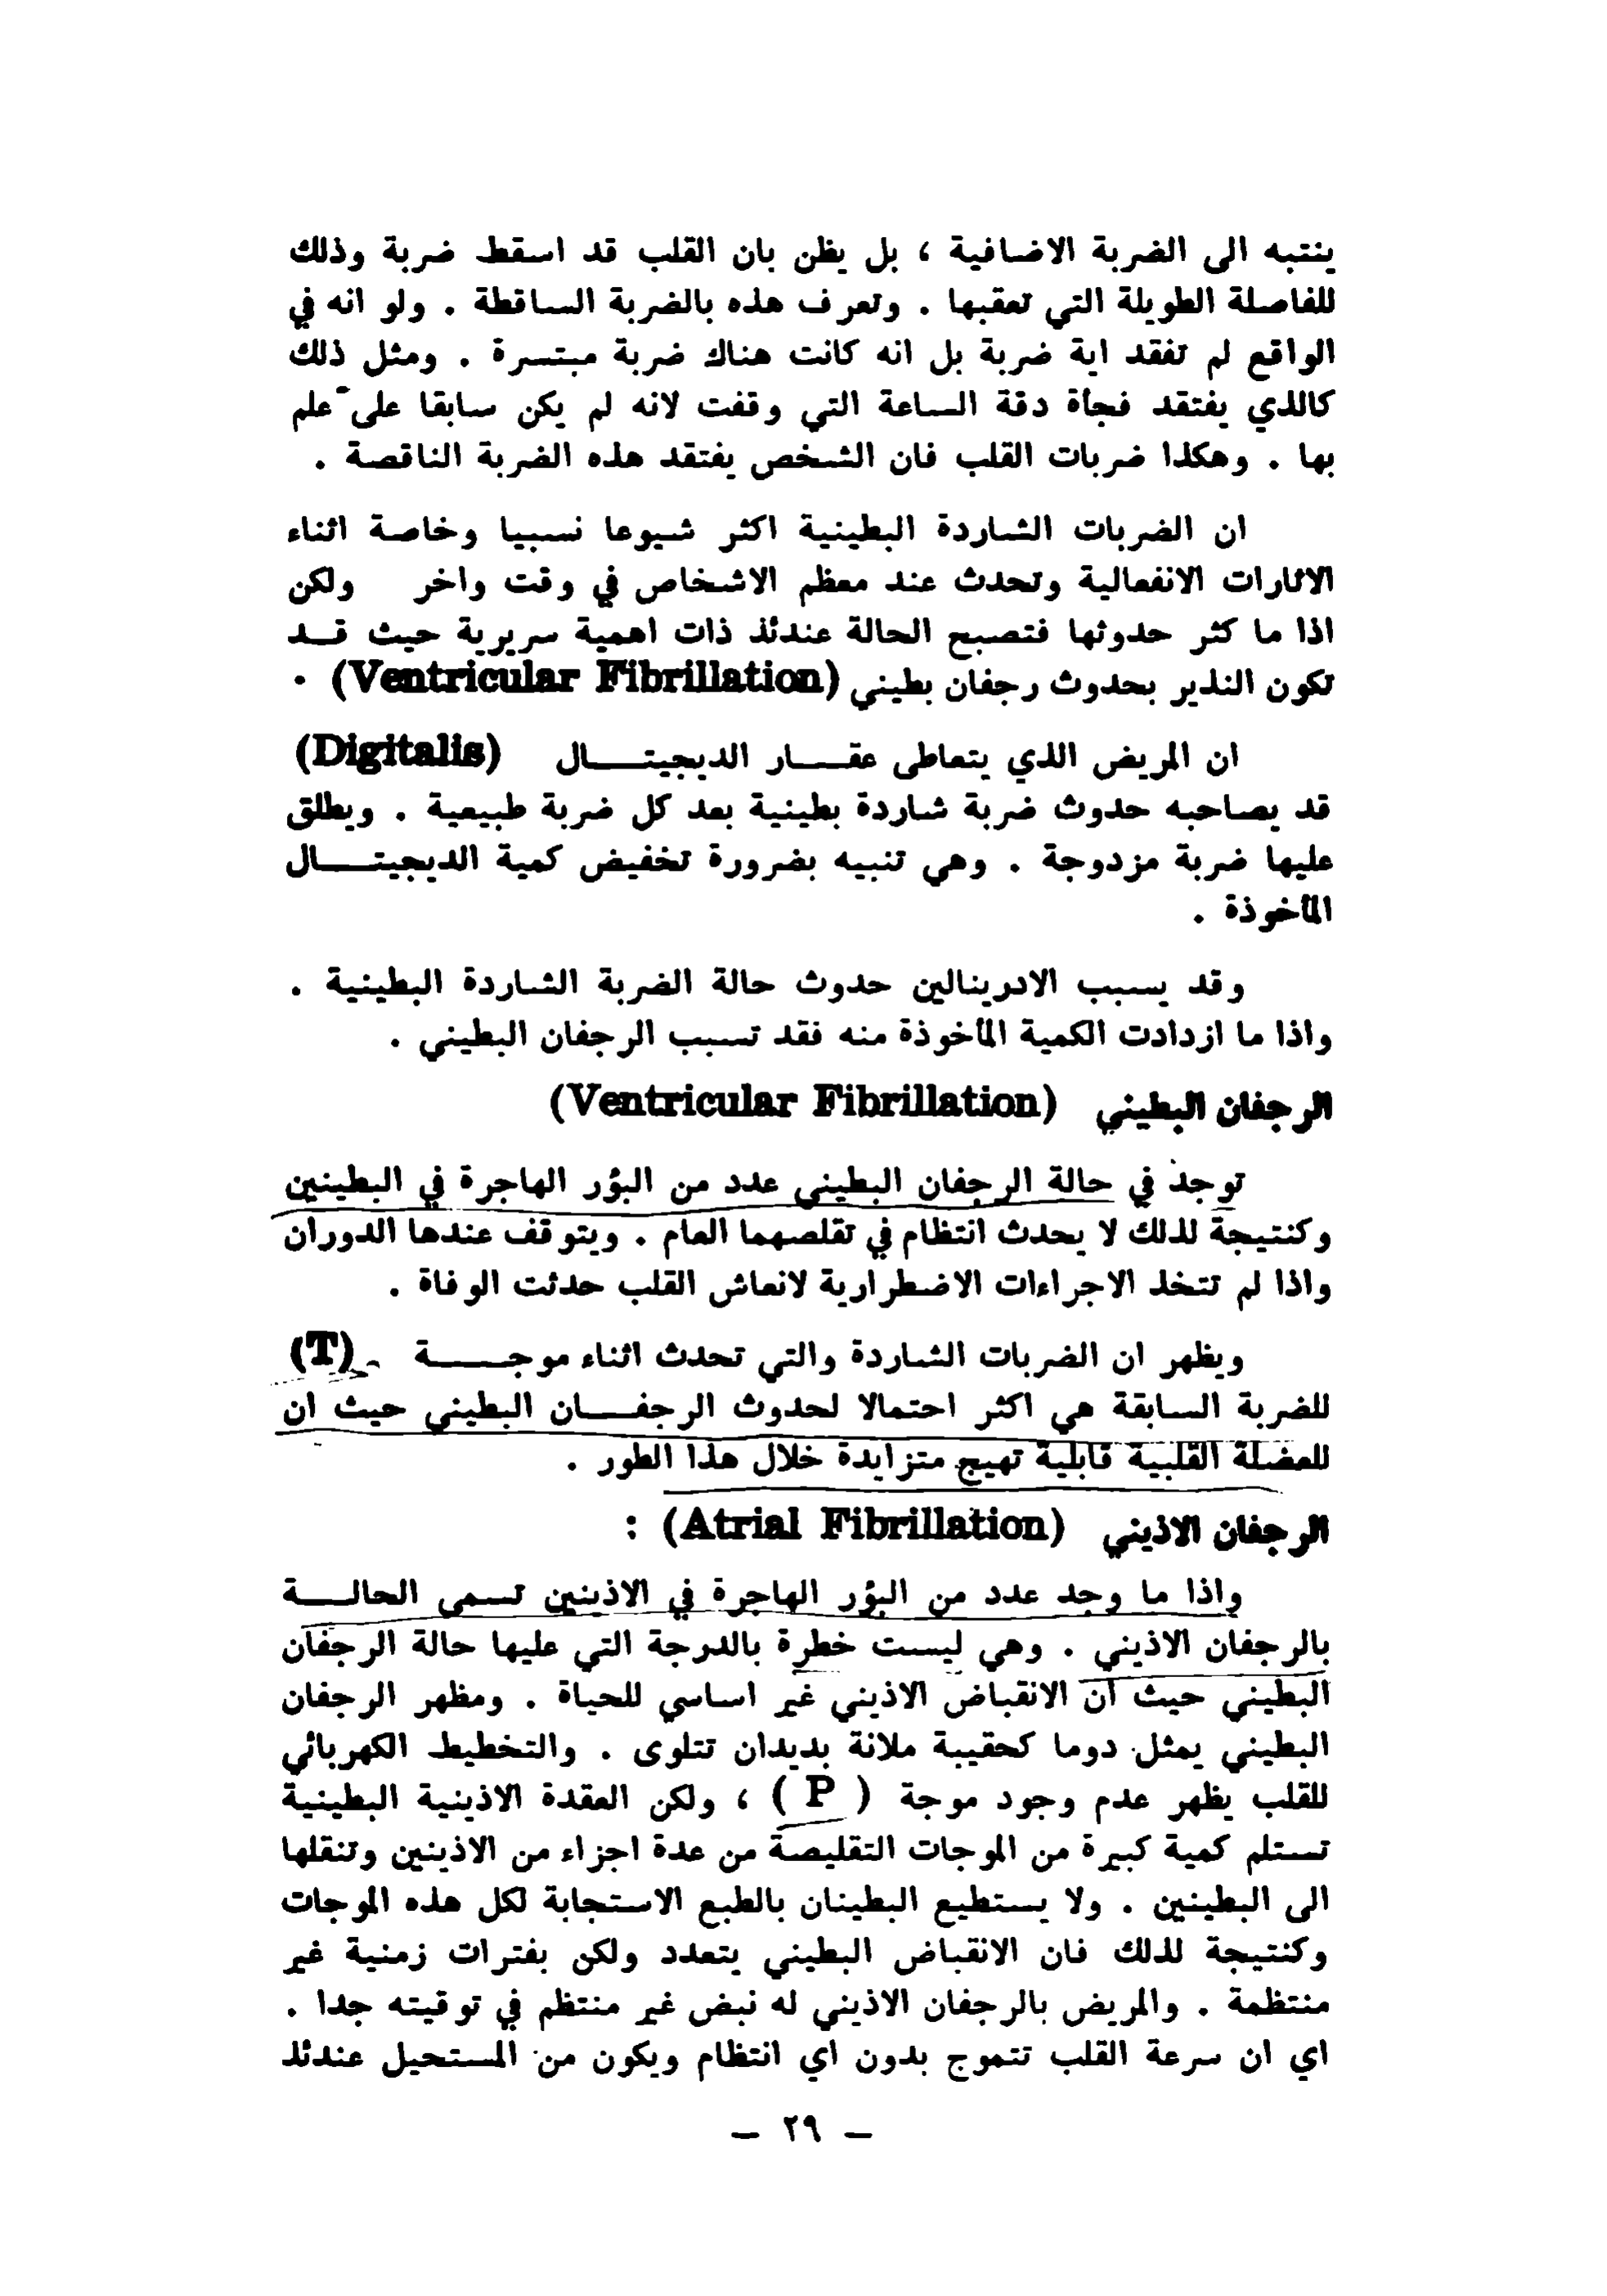 ينتبه الى الضربة الاضافية ، بل يظن بان القلب قد اسقط ضربة وذلك
للفاصلة الطويلة التي تعقبها . وتعرف هذه بالضربة الساقطة . ولو انه في
الواقع لم تفقد اية ضربة بل انه كانت هناك ضربة مبتسرة . ومثل ذلك
كالذي يفتقد فجأة دقة الساعة التي وقفت لانه لم يكن سابقا على علم
بها . وهكذا ضربات القلب فان الشخص يفتقد هذه الضربة الناقصة .
ان الضربات الشاردة البطينية اكثر شيوعا نسبيا وخاصة اثناء
الاثارات الانفعالية وتحدث عند معظم الاشخاص في وقت واخر ولكن
اذا ما كثر حدوثها فتصبح الحالة عندئذ ذات اهمية سريرية حيث قد
تكون النذير بحدوث رجفان بطيني (Ventricular Fibrillation) .
ان المريض الذي يتعاطى عقار الديجيتال (Digitalis)
قد يصاحبه حدوث ضربة شاردة بطينية بعد كل ضربة طبيعية . ويطلق
عليها ضربة مزدوجة . وهي تنبيه بضرورة تخفيض كمية الديجيتال
المأخوذة .
وقد يسبب الادرينالين حدوث حالة الضربة الشاردة البطينية .
واذا ما ازدادت الكمية المأخوذة منه فقد تسبب الرجفان البطيني .
الرجفان البطيني (Ventricular Fibrillation)
توجد في حالة الرجفان البطيني عدد من البؤر الهاجرة في البطينين
وكنتيجة لذلك لا يحدث انتظام في تقلصهما العام . ويتوقف عندها الدوران
واذا لم تتخذ الاجراءات الاضطرارية لانعاش القلب حدثت الوفاة .
ويظهر ان الضربات الشاردة والتي تحدث اثناء موجة (T)
للضربة السابقة هي اكثر احتمالا لحدوث الرجفان البطيني حيث ان
للعضلة القلبية قابلية تهيج متزايدة خلال هذا الطور .
الرجفان الاذيني (Atrial Fibrillation) :
واذا ما وجد عدد من البؤر الهاجرة في الاذينين تسمى الحالة
بالرجفان الاذيني . وهي ليست خطرة بالدرجة التي عليها حالة الرجفان
البطيني حيث ان الانقباض الاذيني غير اساسي للحياة . ومظهر الرجفان
البطيني يمثل دوما كحقيبة ملانة بديدان تتلوى . والتخطيط الكهربائي
للقلب يظهر عدم وجود موجة ( P ) ، ولكن العقدة الاذينية البطينية
تستلم كمية كبيرة من الموجات التقليصة من عدة اجزاء من الاذينين وتنقلها
الى البطينين . ولا يستطيع البطينان بالطبع الاستجابة لكل هذه الموجات
وكنتيجة لذلك فان الانقباض البطيني يتعدد ولكن بفترات زمنية غير
منتظمة . والمريض بالرجفان الاذيني له نبض غير منتظم في توقيته جدا .
اي ان سرعة القلب تتموج بدون اي انتظام ويكون من المستحيل عندئذ
– ٢٩ –